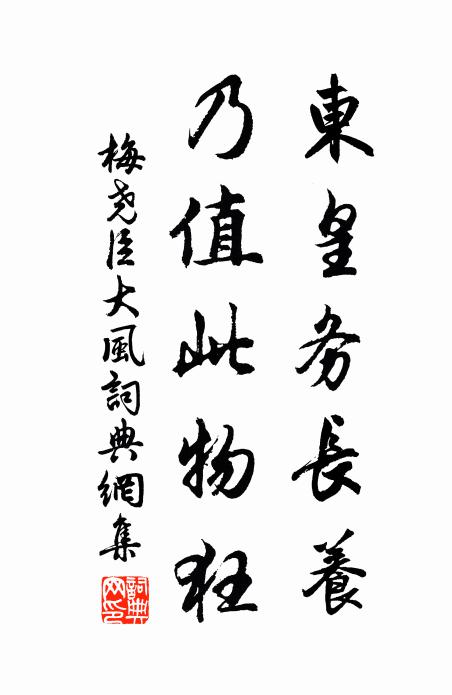 東皇务長養
乃值此物狂
梅尧臣大風詞典網集
詞典网印